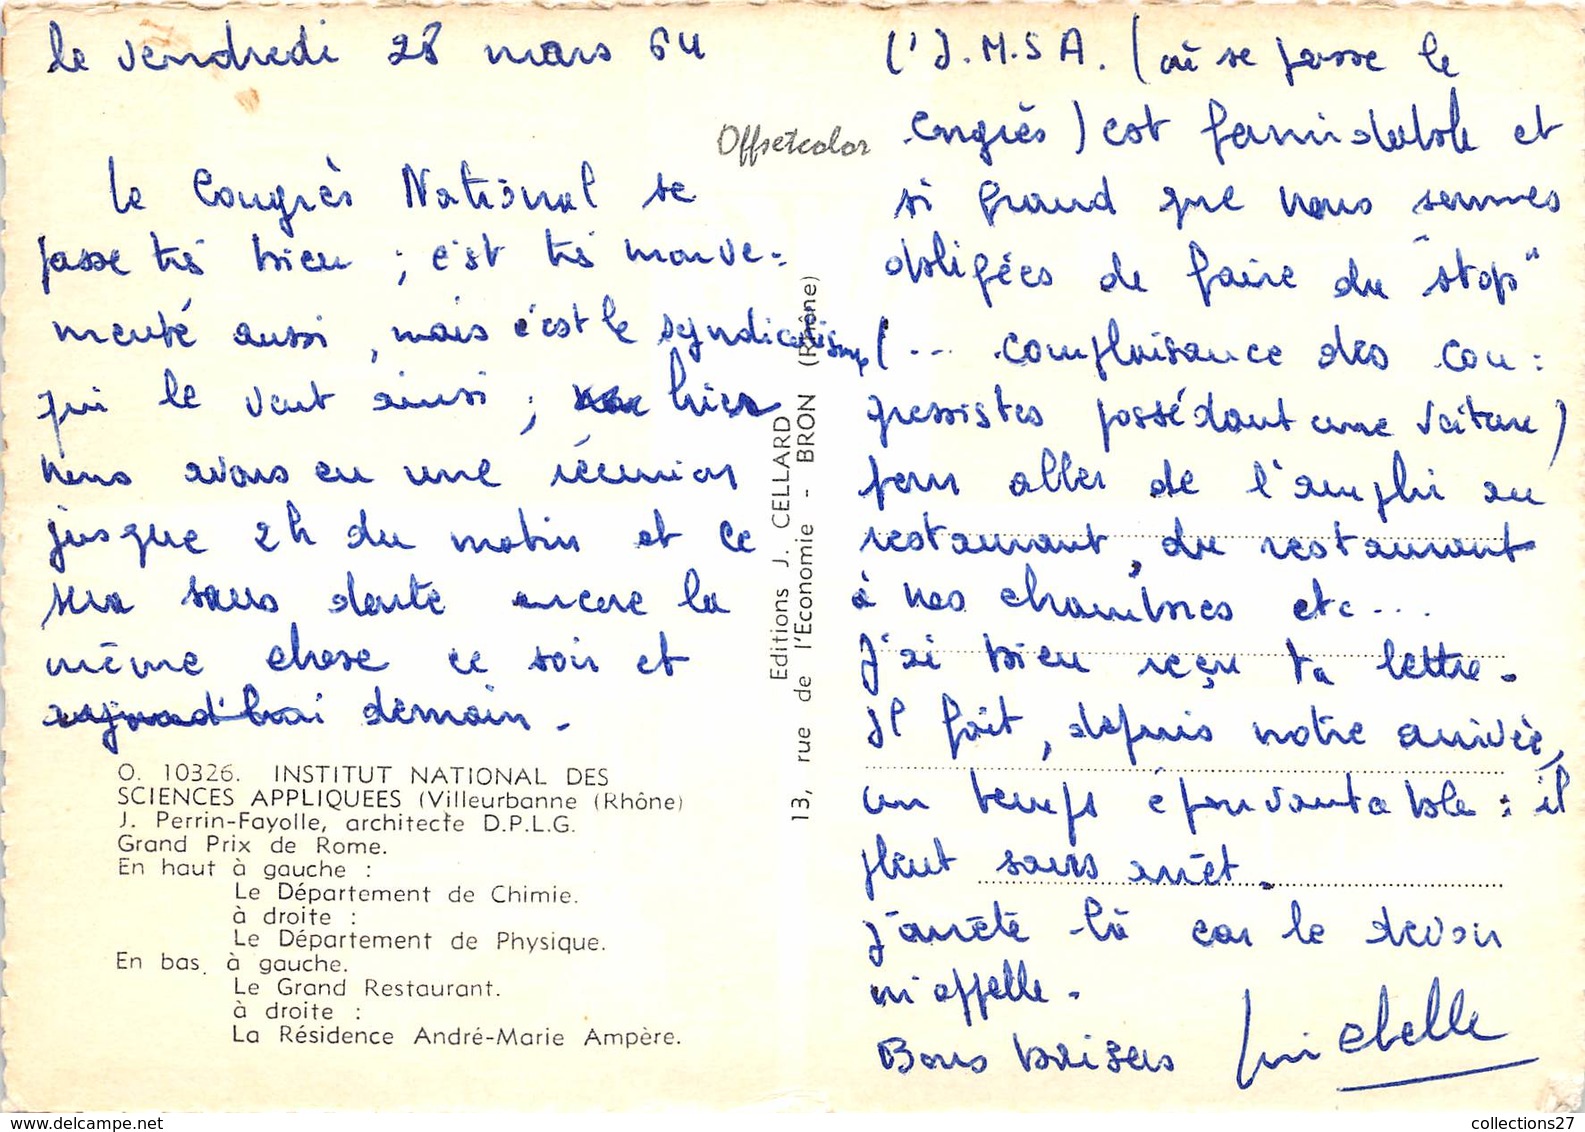 le vendredi 28 mars 64
le Congrès National se
passe très bien ; c'est très mouve-
menté aussi, mais c'est le syndicalisme
qui le veut ainsi ; hier
nous avons eu une réunion
jusque 2h du matin et ce
sera sans doute encore la
même chose ce soir et
aujourd'hui demain.
O. 10326. INSTITUT NATIONAL DES
SCIENCES APPLIQUEES (Villeurbanne (Rhône)
J. Perrin-Fayolle, architecte D.P.L.G.
Grand Prix de Rome.
En haut à gauche :
Le Département de Chimie.
à droite :
Le Département de Physique.
En bas, à gauche.
Le Grand Restaurant.
à droite :
La Résidence André-Marie Ampère.
Offsetcolor
Editions J. CELLARD
13, rue de l'Economie - BRON (Rhône)
L'I.N.S.A. (où se passe le
congrès) est formidable et
si grand que nous sommes
obligées de faire du "stop"
(... complaisance des con-
gressistes possédant une voiture)
pour aller de l'amphi au
restaurant, du restaurant
à nos chambres etc....
J'ai bien reçu ta lettre.
Il fait, depuis notre arrivée,
un temps épouvantable : il
pleut sans arrêt.
J'arrête là car le devoir
m'appelle.
Bons baisers Michelle
collections27